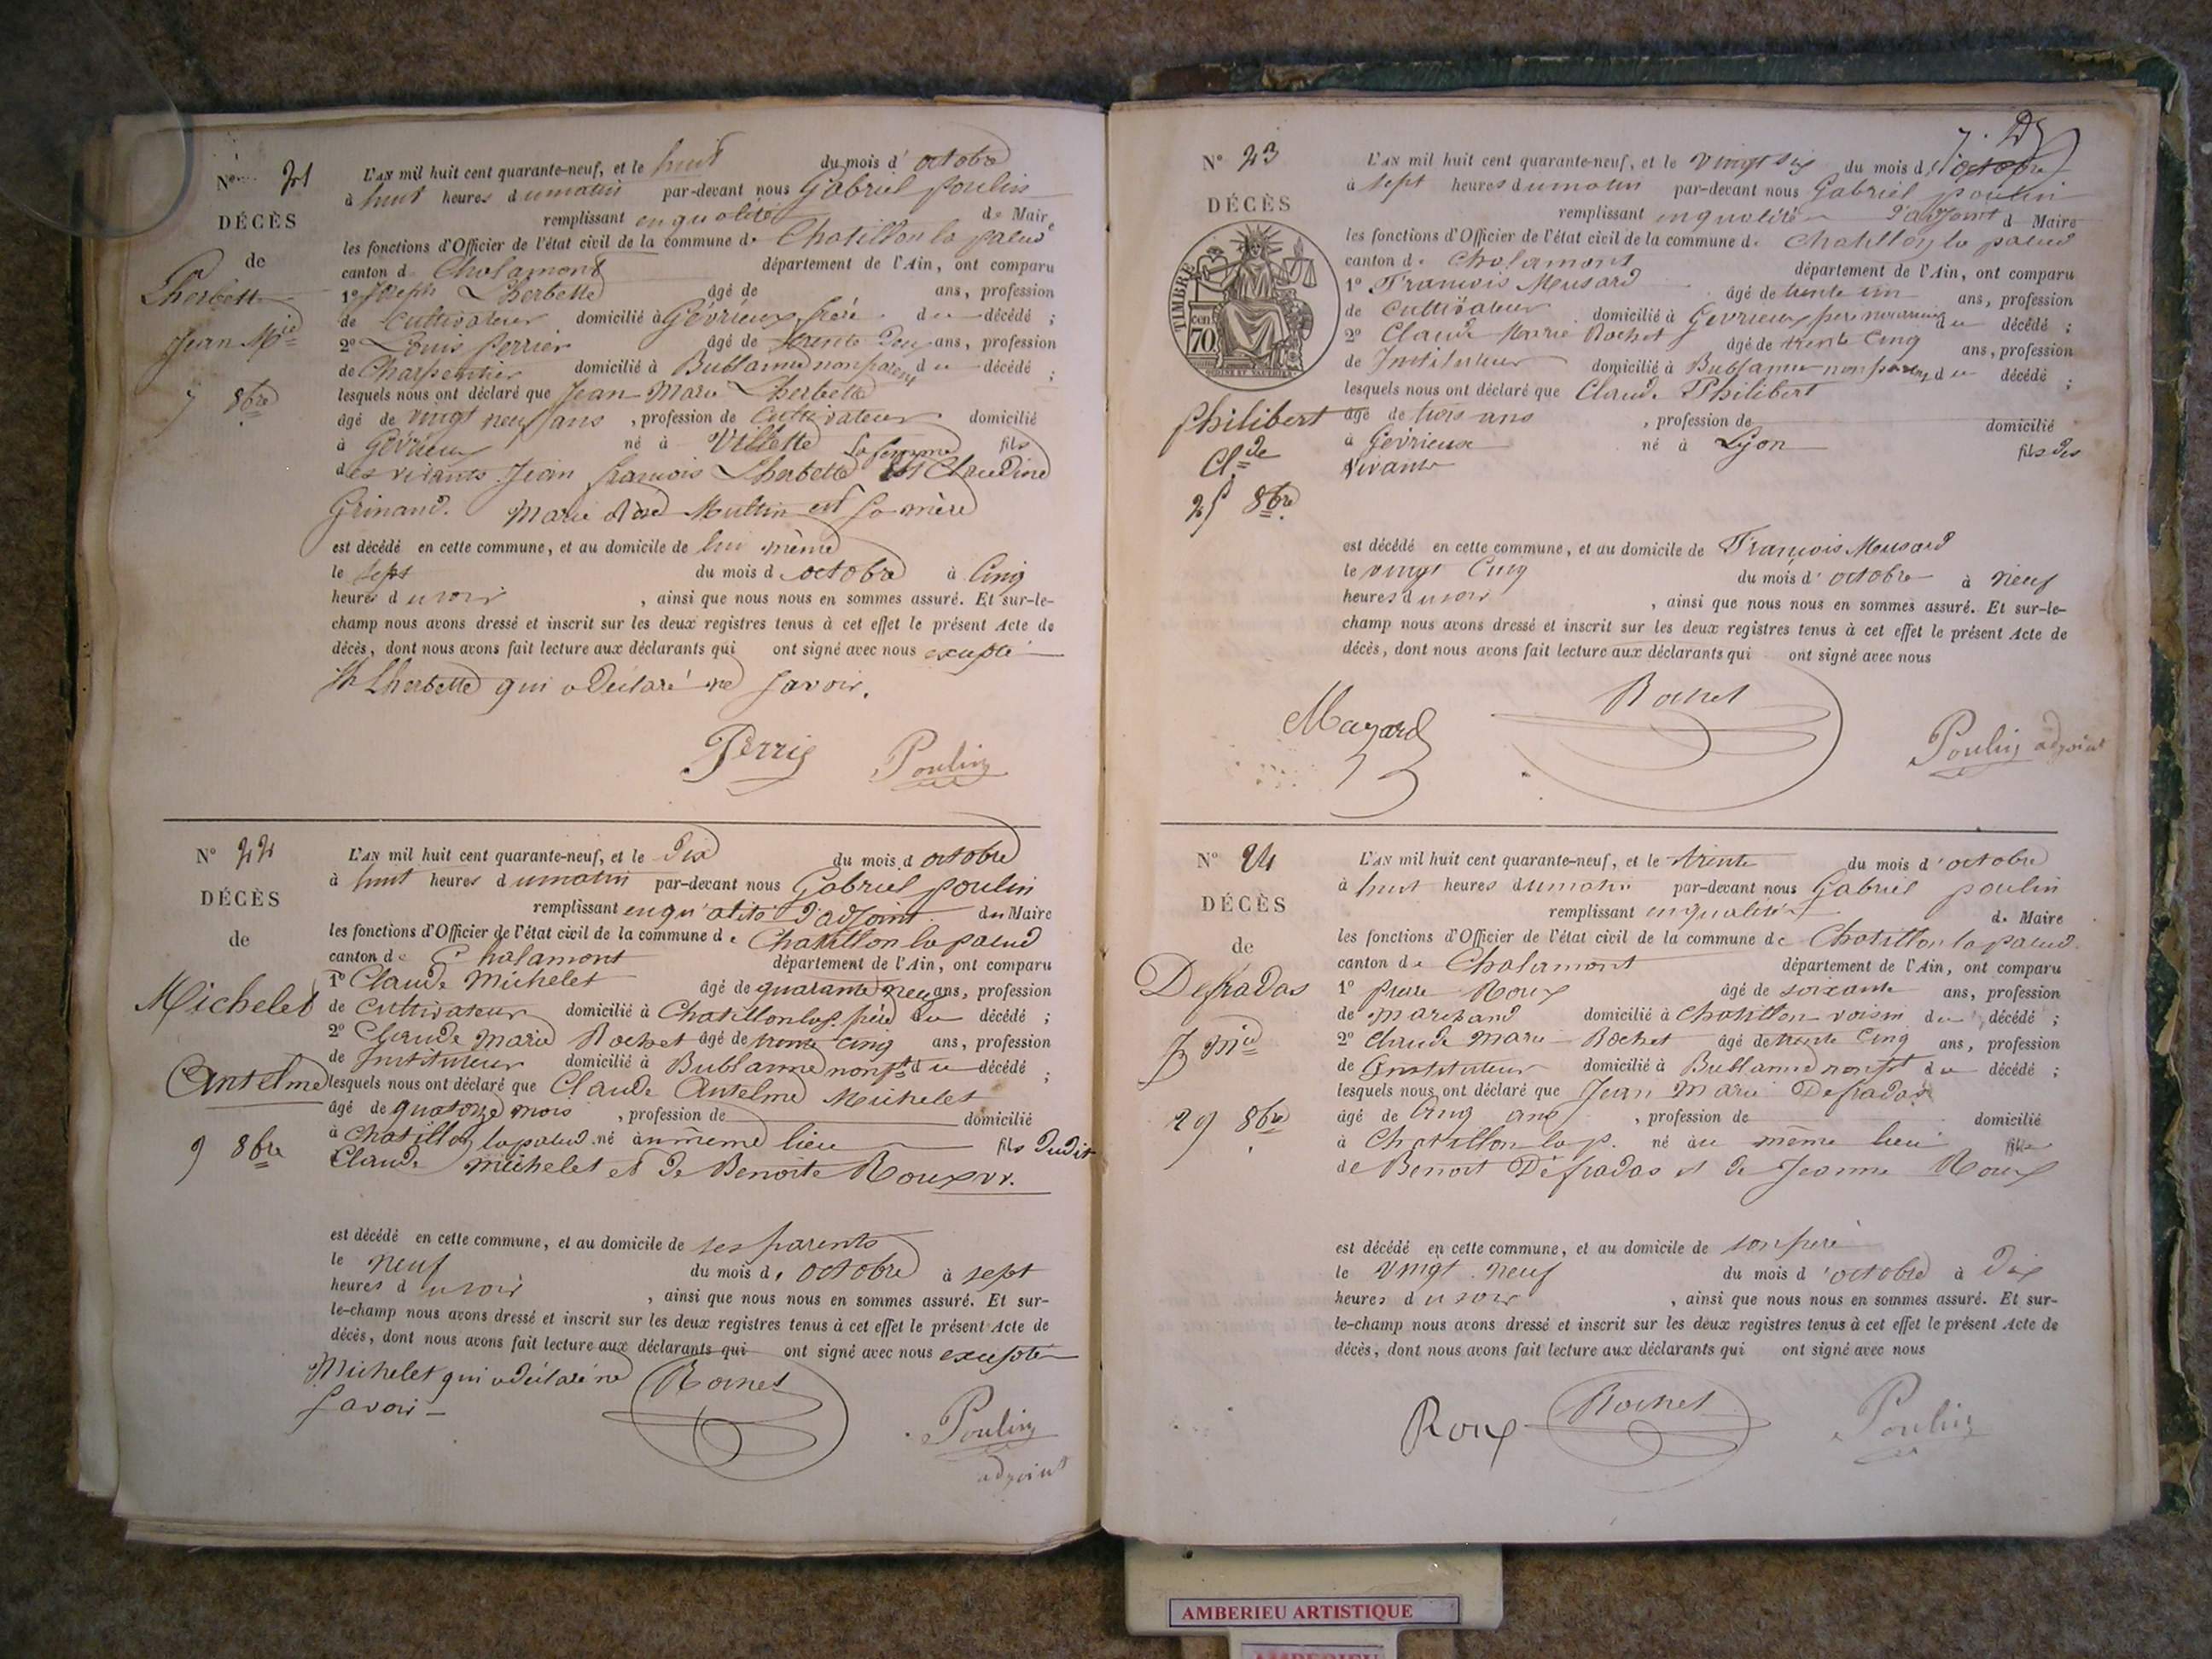 N° 21
DÉCÈS
de
Lherbette
Jean Mie
7 8bre
L'AN mil huit cent quarante-neuf, et le huit du mois d'octobre
à huit heures du matin par-devant nous Gabriel poulin
remplissant en qualité de Maire
les fonctions d'Officier de l'état civil de la commune de Chatillon la palud
canton de Chalamont département de l'Ain, ont comparu
1° Joseph Lherbette âgé de ans, profession
de Cultivateur domicilié à Gévrieux frère du décédé ;
2° Louis Perrier âgé de trente deux ans, profession
de Charpentier domicilié à Bublanne non parent du décédé ;
lesquels nous ont déclaré que Jean Marie Lherbette
âgé de vingt neuf ans , profession de Cultivateur domicilié
à Gévrieux né à Villette fils
des vivants Jean françois Lherbette La femme est Claudine
Grinand. Marie Mullin est Sa mère
est décédé en cette commune, et au domicile de lui même
le sept du mois d octobre à Cinq
heures du soir , ainsi que nous nous en sommes assuré. Et sur-le-
champ nous avons dressé et inscrit sur les deux registres tenus à cet effet le présent Acte de
décès, dont nous avons fait lecture aux déclarants qui ont signé avec nous excepté
Jh Lherbette qui a déclaré ne Savoir.
Perrie Poulin
N° 22
DÉCÈS
de
Michelet
Antelme
9 8bre
L'AN mil huit cent quarante-neuf, et le dix du mois d octobre
à huit heures du matin par-devant nous Gabriel poulin
remplissant en qualité d'adjoint du Maire
les fonctions d'Officier de l'état civil de la commune de Chatillon la palud
canton de Chalamont département de l'Ain, ont comparu
1° Claude Michelet âgé de quarante neuf ans, profession
de Cultivateur domicilié à Chatillon la p. père du décédé ;
2° Claude Marie Rochet âgé de trente cinq ans, profession
de Instituteur domicilié à Bublanne non pt du décédé ;
lesquels nous ont déclaré que Claude Antelme Michelet
âgé de quatorze mois , profession de domicilié
à Chatillon la palud né au même lieu fils dudit
Claude Michelet et de Benoite Roux vv.
est décédé en cette commune, et au domicile de ses parents
le neuf du mois d'octobre à sept
heures du soir , ainsi que nous nous en sommes assuré. Et sur-
le-champ nous avons dressé et inscrit sur les deux registres tenus à cet effet le présent Acte de
décès, dont nous avons fait lecture aux déclarants qui ont signé avec nous excepté
Michelet qui a déclaré ne
Savoir
Rochet
Poulin
adjoint
N° 23
DÉCÈS
TIMBRE
cen
70
philibert
Cl.de
25 8bre
L'AN mil huit cent quarante-neuf, et le vingt six du mois d'octobre
à sept heures du matin par-devant nous Gabriel poulin
remplissant en qualité d'adjoint d Maire
les fonctions d'Officier de l'état civil de la commune de Chatillon la palud
canton de Chalamont département de l'Ain, ont comparu
1° François Mensard âgé de trente un ans, profession
de Cultivateur domicilié à Gevrieux père nourricier du décédé ;
2° Claude Marie Rochet âgé de trente Cinq ans, profession
de Instituteur domicilié à Bublanne non parent du décédé ;
lesquels nous ont déclaré que Claude Philibert
âgé de trois ans , profession de domicilié
à Gévrieux né à Lyon fils des
vivants
est décédé en cette commune, et au domicile de François Mensard
le vingt Cinq du mois d'octobre à neuf
heures du soir , ainsi que nous nous en sommes assuré. Et sur-le-
champ nous avons dressé et inscrit sur les deux registres tenus à cet effet le présent Acte de
décès, dont nous avons fait lecture aux déclarants qui ont signé avec nous
Mazard Rochet Poulin adjoint
N° 24
DÉCÈS
de
Defradas
Jn Mie
29 8bre
L'AN mil huit cent quarante-neuf, et le trente du mois d'octobre
à huit heures du matin par-devant nous Gabriel poulin
remplissant en qualité d. Maire
les fonctions d'Officier de l'état civil de la commune de Chatillon la palud.
canton de Chalamont département de l'Ain, ont comparu
1° Pierre Roux âgé de soixante ans, profession
de marchand domicilié à Chatillon voisin du décédé ;
2° Claude Marie Rochet âgé de trente Cinq ans, profession
de Instituteur domicilié à Bublanne non pt du décédé ;
lesquels nous ont déclaré que Jean Marie Defradas
âgé de cinq ans , profession de domicilié
à Chatillon la p. né au même lieu fils
de Benoit Défradas et de Jeanne Roux
est décédé en cette commune, et au domicile de son père
le vingt neuf du mois d'octobre à dix
heures du soir , ainsi que nous nous en sommes assuré. Et sur-
le-champ nous avons dressé et inscrit sur les deux registres tenus à cet effet le présent Acte de
décès, dont nous avons fait lecture aux déclarants qui ont signé avec nous
Roux Rochet Poulin
AMBERIEU ARTISTIQUE
AMBERIEU